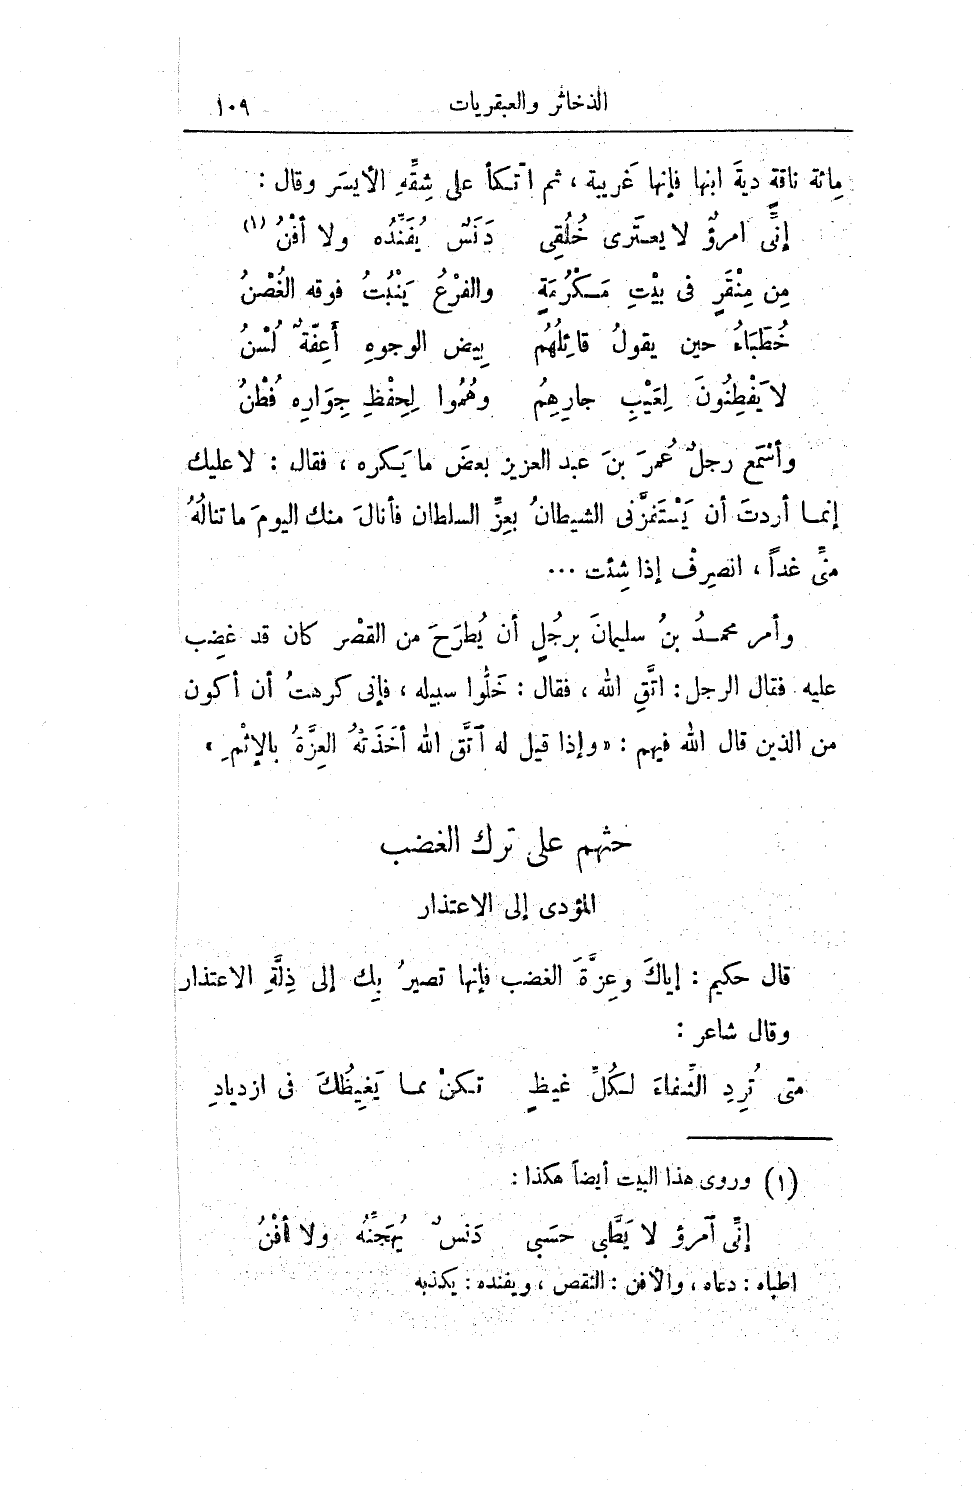 الذخائر والعبقريات ١٠٩
مِائة ناقةٍ ديةَ ابنها فإنها غَريبة ، ثم اتّكأ على شِقِّهِ الأيسَر وقال :
إنِّى امرؤٌ لا يعتَرى خُلُقِى دَنَسٌ يُفَنِّدُه ولا أَفْنُ (١)
مِن مِنْقَرٍ فى بيْتِ مَكْرُمَةٍ والفرْعُ يَنْبُتُ فوقه الغُصْنُ
خُطَبَاءُ حين يقولُ قائِلُهُم بِيض الوجوهِ أَعِفّةٌ لُسْنُ
لا يَفْطِنُونَ لِعَيْبِ جارِهِمُ وهُمُوا لِحِفْظِ جِوَارِه فُطْنُ
وأسْمَع رجلٌ عُمرَ بنَ عبد العزيز بعضَ ما يَكره ، فقال : لا عليك
إنما أردتَ أن يَسْتَفِزَّنى الشيطانُ بعِزِّ السلطان فأنالَ منك اليومَ ما تنالُهُ
منِّى غداً ، انصرِفْ إذا شِئت ...
وأمر محمدُ بنُ سليمانَ برجُلٍ أن يُطرَحَ من القصْر كان قد غضِب
عليه فقال الرجل : اتَّقِ الله ، فقال : خَلُّوا سبيله ، فإنى كرهتُ أن أكون
من الذين قال الله فيهم : « وإذا قيل له ٱتَّق الله أخَذَتْهُ العِزَّةُ بالإثْمِ »
حثهم على ترك الغضب
المؤدى إلى الاعتذار
قال حكيم : إياكَ وعِزَّةَ الغضب فإنها تصيرُ بِك إلى ذِلَّةِ الاعتذار
وقال شاعر :
متى تُرِدِ الشِّفاءَ لكُلِّ غيظٍ تكنْ مما يَغيِظُكَ فى ازديادِ
(١) وروى هذا البيت أيضاً هكذا :
إنِّى ٱمرؤ لا يَطَّبى حسَبى دَنسٌ يُهَجِّنُه ولا أفْنُ
اطباه : دعاه ، والأفن : النقص ، ويفنده : يكذبه